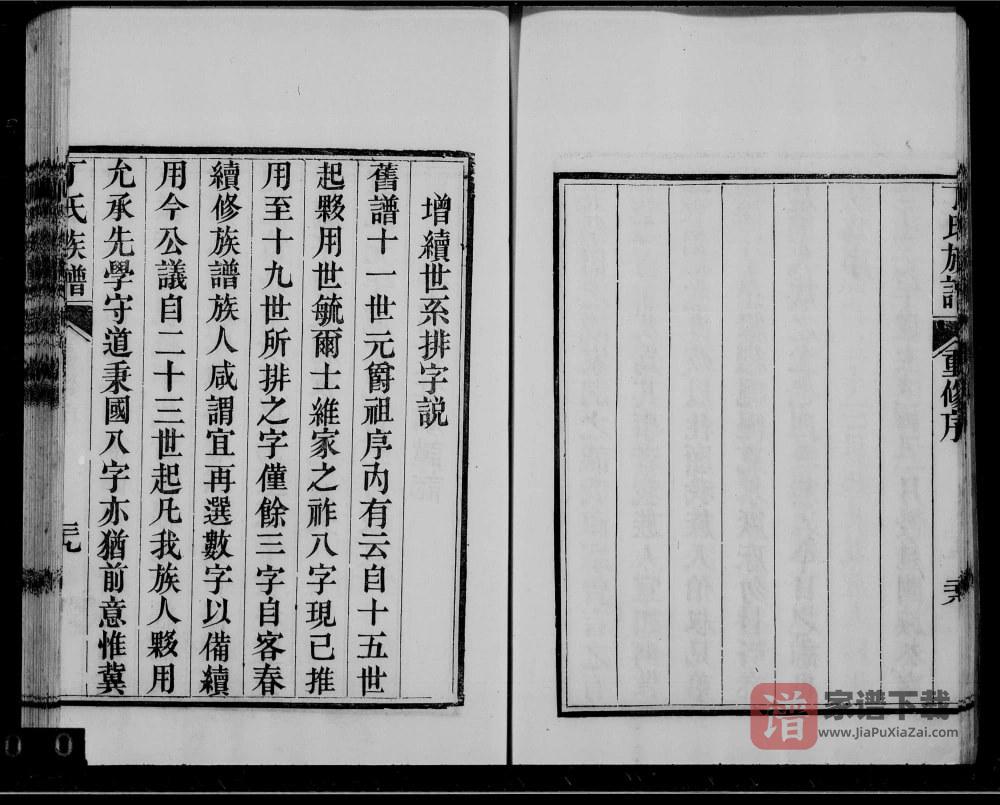 丁氏族譜
重修序
增續世系排字說
舊譜十一世元爵祖序內有云自十五世
起夥用世毓爾士維家之祚八字現已推
用至十九世所排之字僅餘三字自客春
續修族譜族人咸謂宜再選數字以備續
用今公議自二十三世起凡我族人夥用
允承先學守道秉國八字亦猶前意惟冀
丁氏族譜
三九
谱 家谱下载
www.JiaPuXiaZai.com
0 0